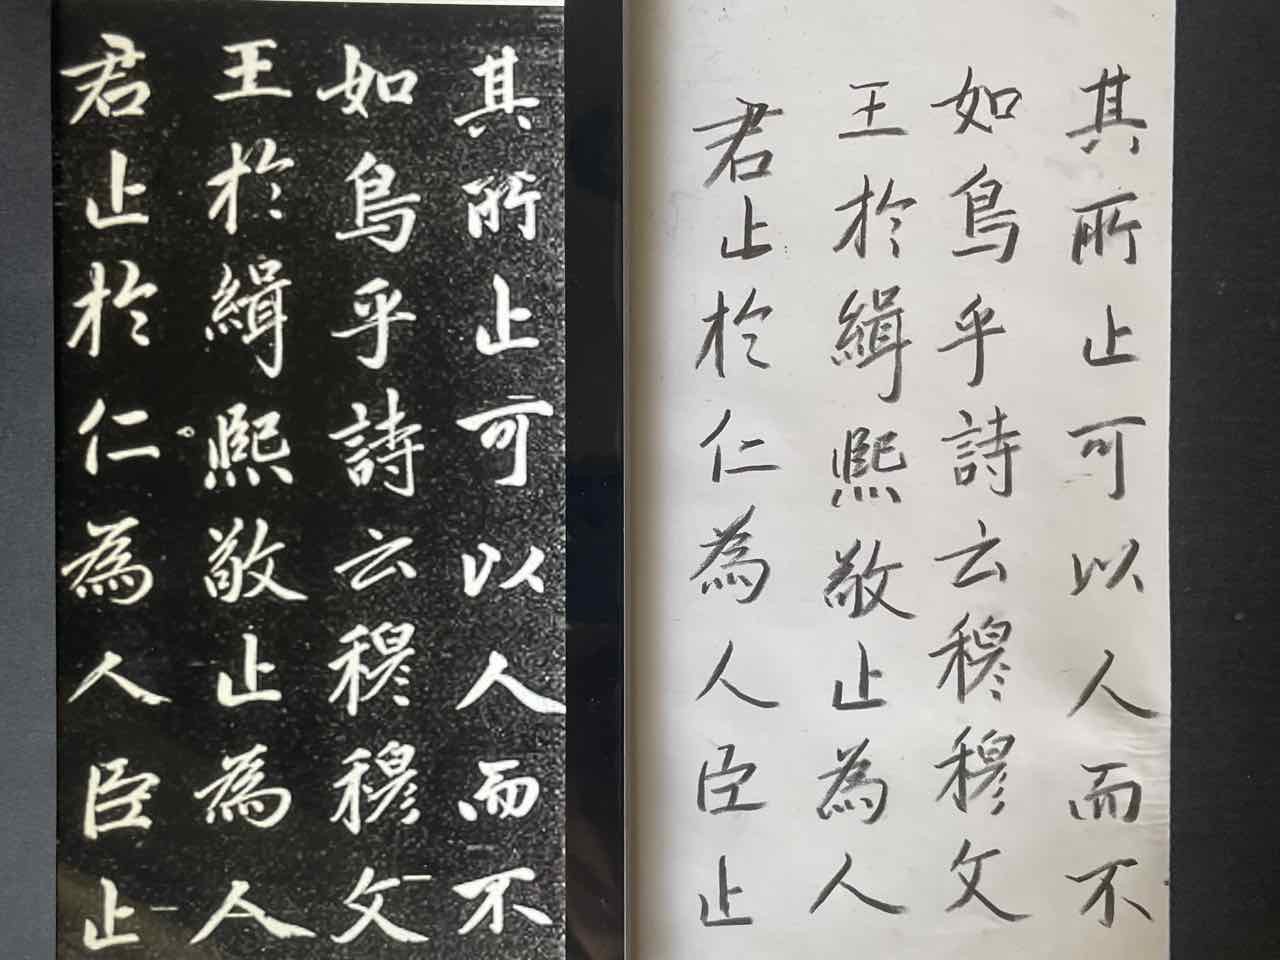 其所止可以人而不
如鳥乎詩云穆穆文
王於緝熙敬止為人
君止於仁為人臣止
其所止可以人而不
如鳥乎詩云穆穆文
王於緝熙敬止為人
君止於仁為人臣止